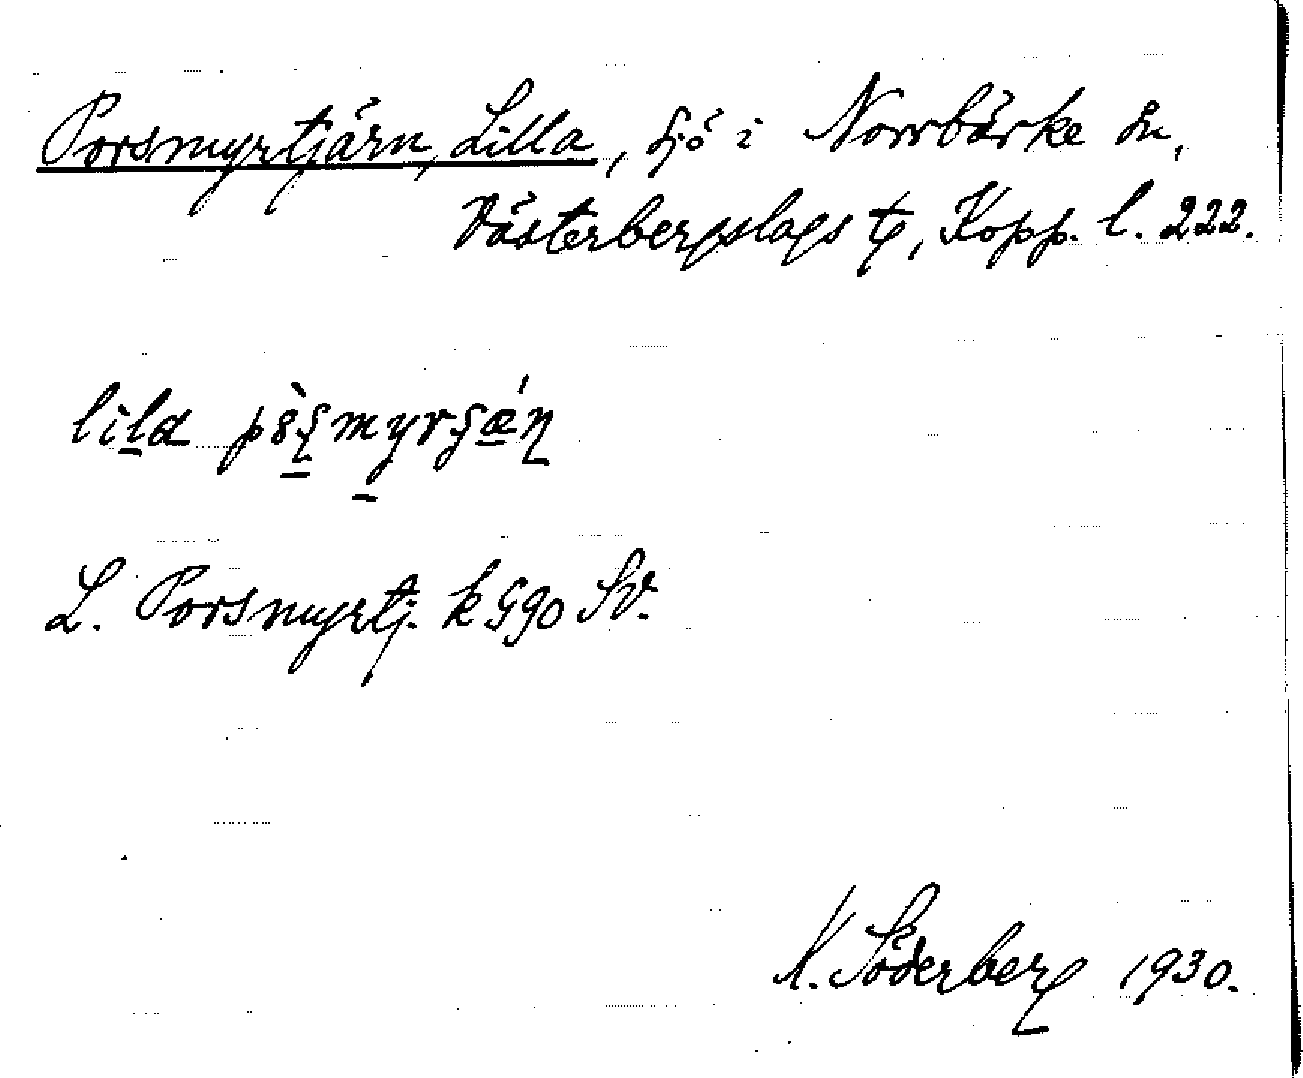 Porsmyrtjärn, Lilla, sjö i Norrbärke sn,
Västerbergslags tg, Kopp. l. 222.
lila
L. Porsmyrtj. k 590 Sv.
K. Söderberg 1930.